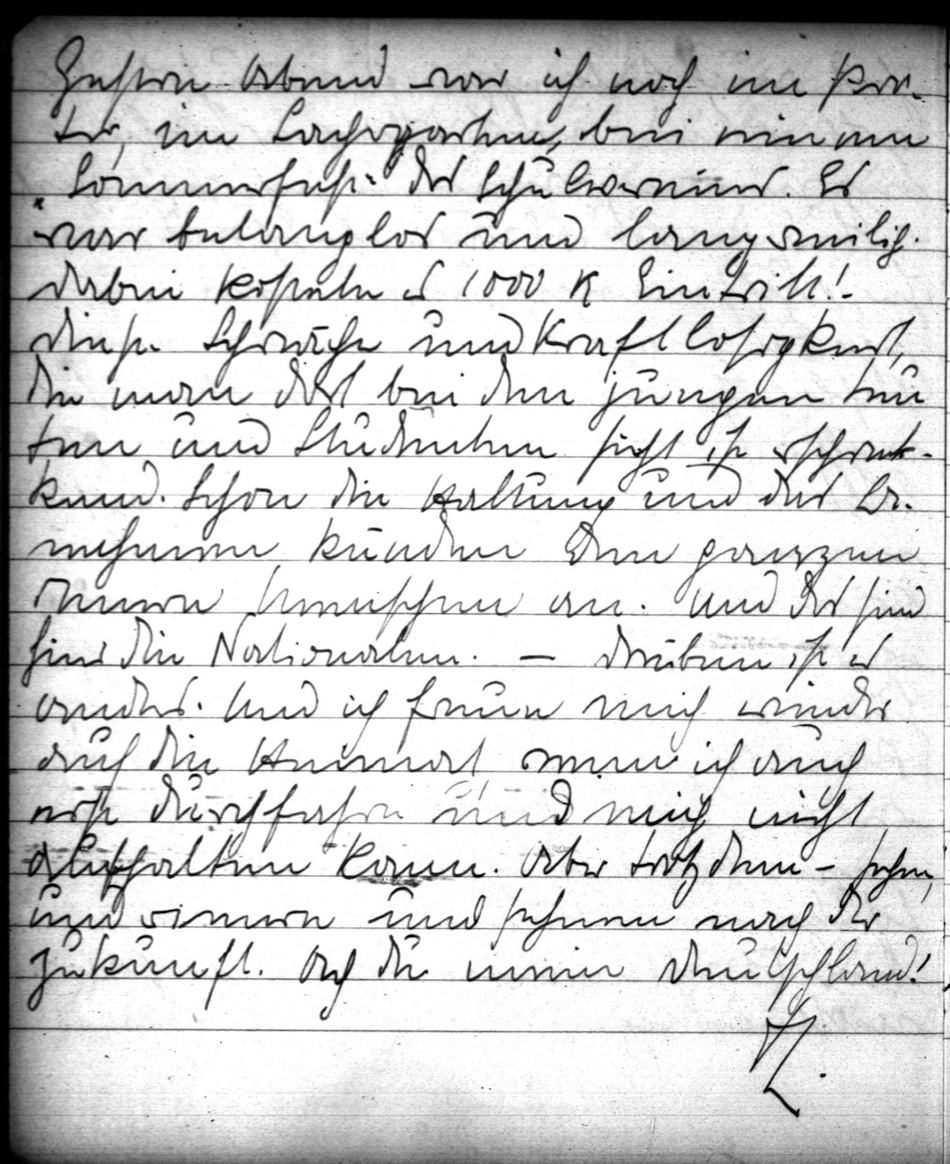 Gestern Abend war ich noch im Pra-
ter, im Sachergarten, bei einem
"Sommerfest" des Schulvereines. Es
war belanglos und langweilig.
dabei kosteten es 1000 K Eintritt!
diese Schwäche und Kraftlosigkeit,
die man dort bei den jungen Leu
ten und Studenten sieht ist erschrek-
kend. Schon die Haltung und das Be-
nehmen künden den ganzen
inneren Menschen an. Und das sind
hier die Nationalen. — drüben ist es
anders. Und ich freue mich wieder
auf die Heimat wenn ich auch
erst durchfahre und mich nicht
aufhalten kann. Aber trotzdem – sehen,
und erinnern und sehnen nach der
Zukunft. Ach du mein Deutschland!